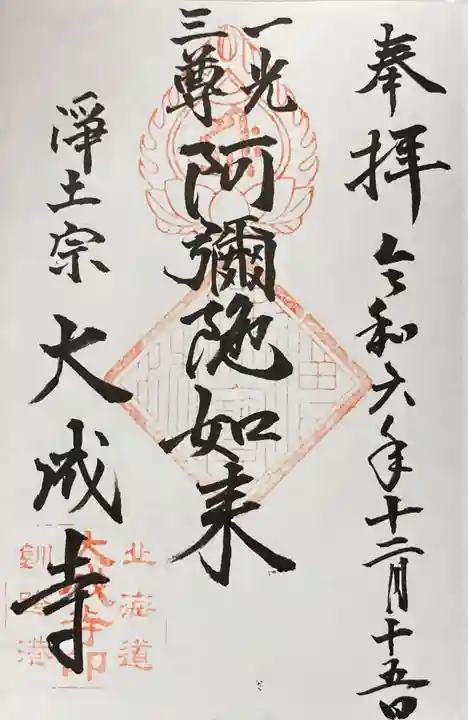 奉拝 令和六年十二月十五日
一光
三尊
阿彌陀如来
淨土宗 大成寺
北海道
大成寺印
釧路港